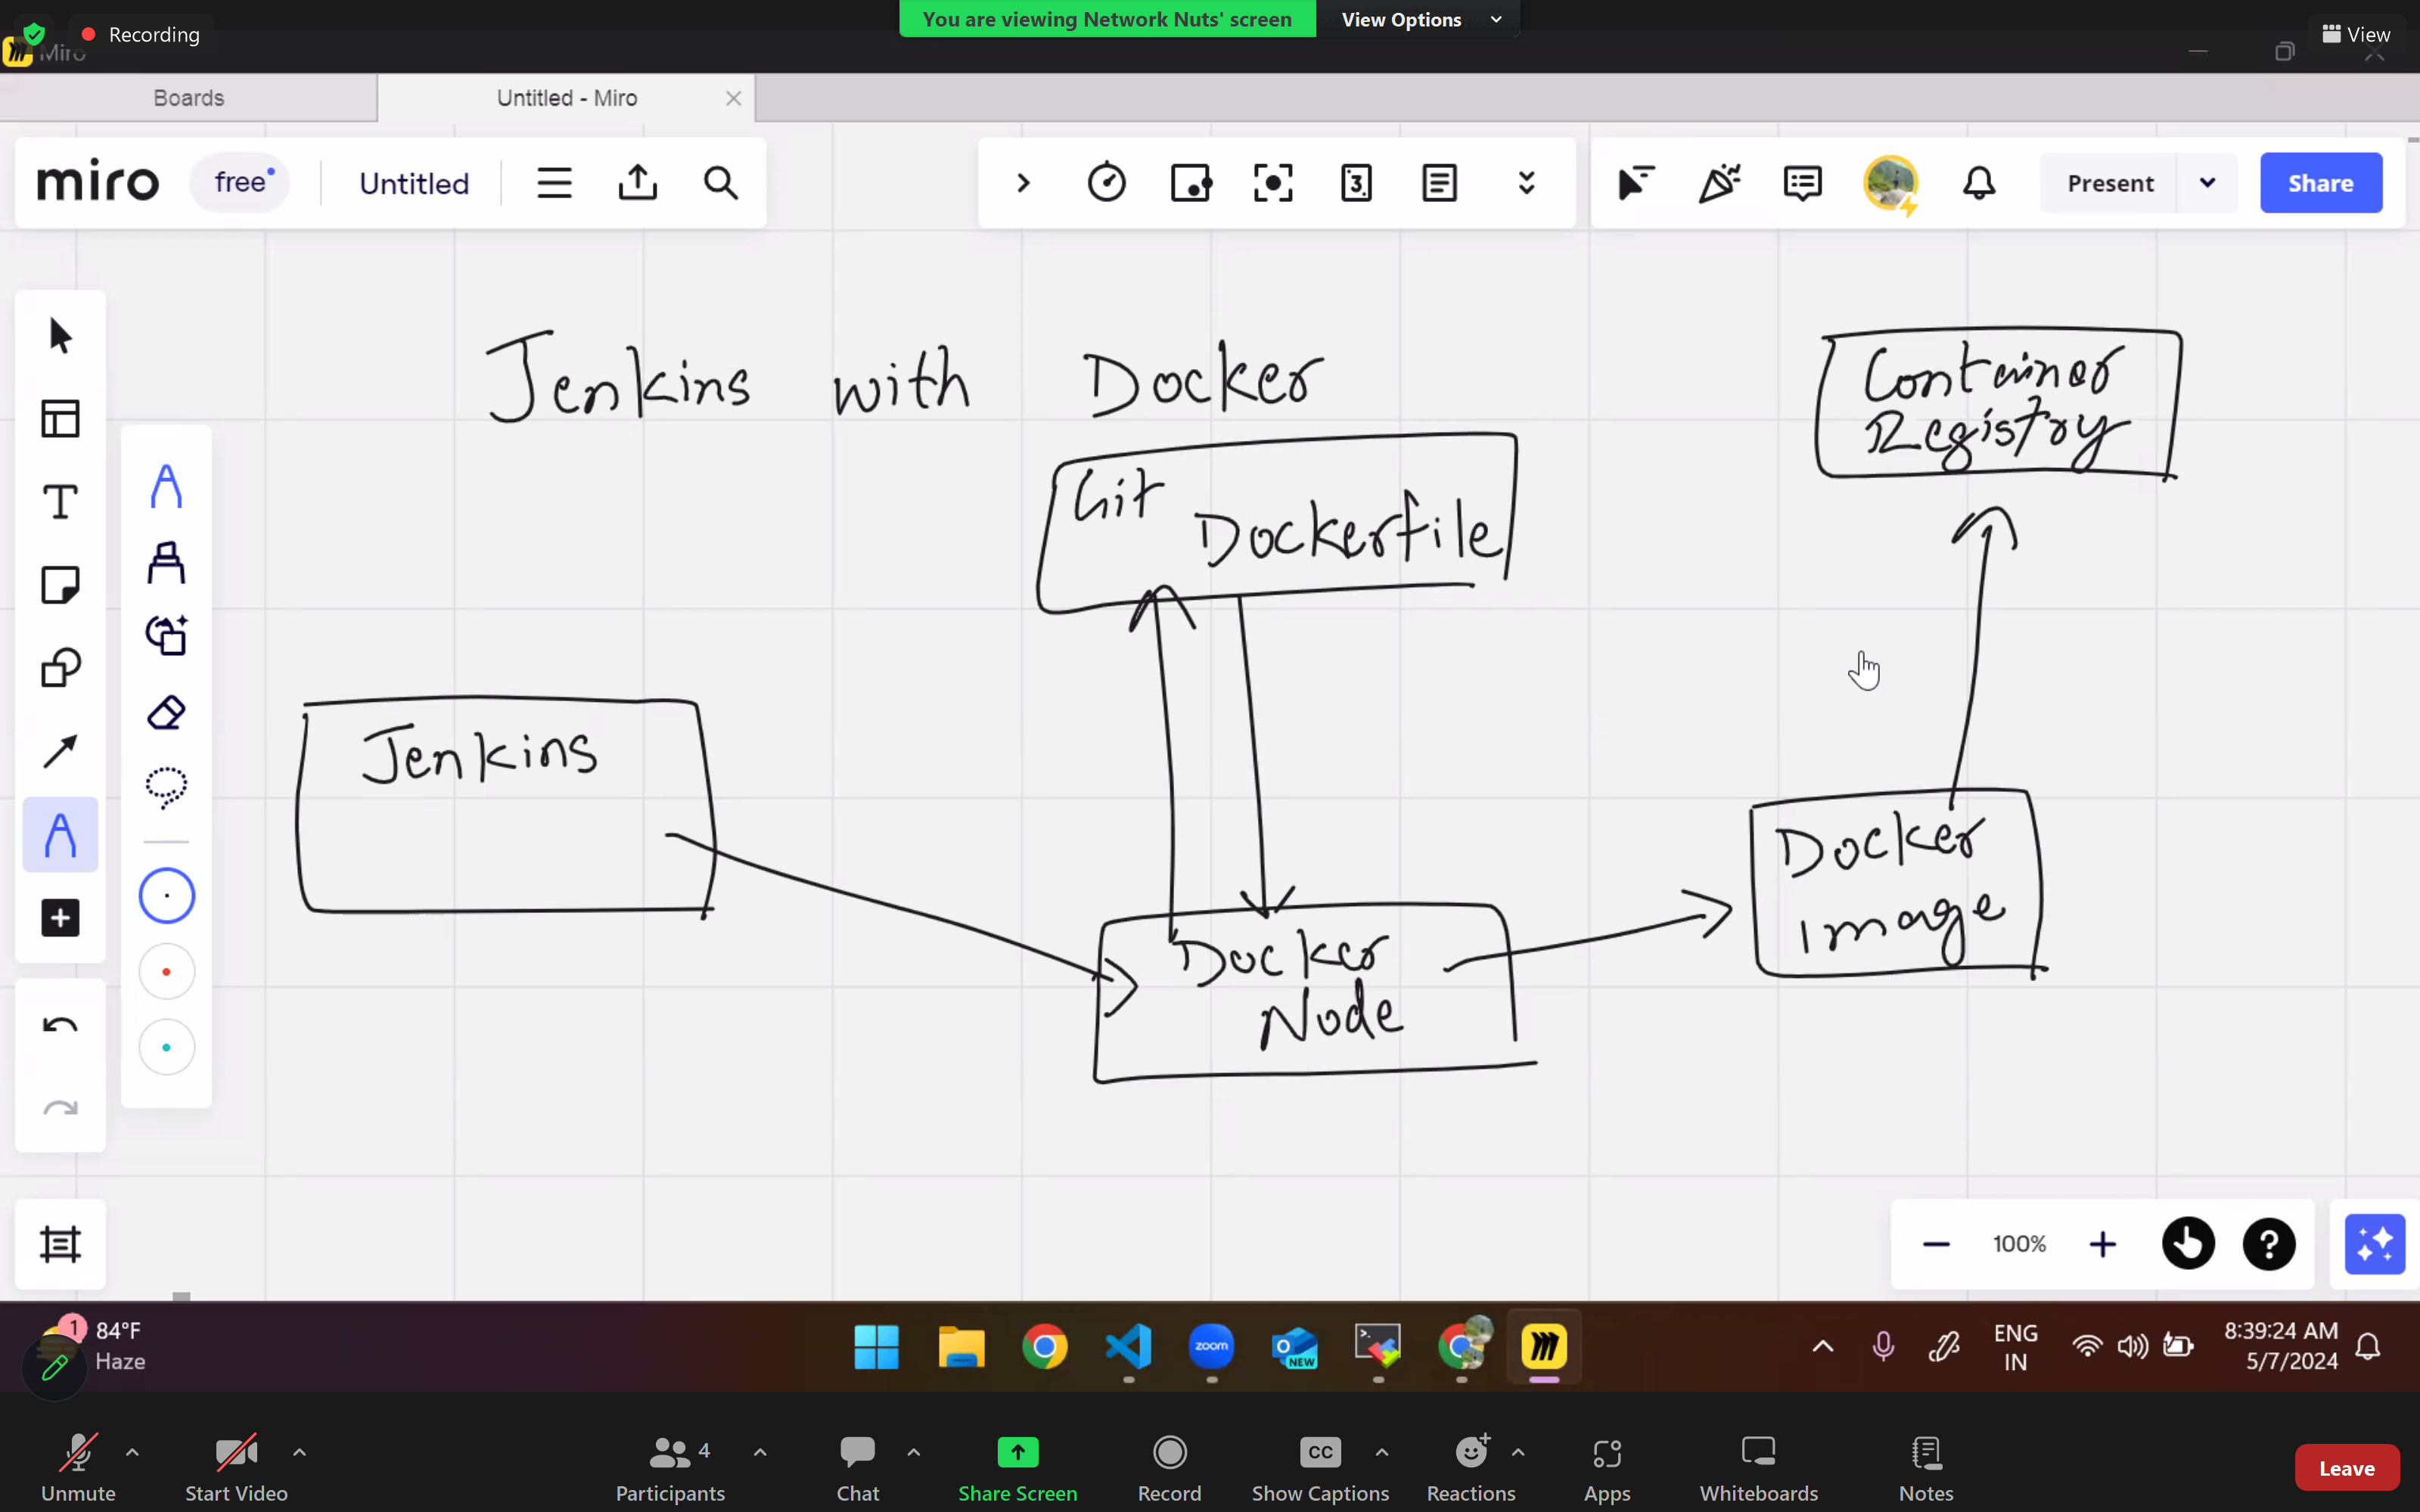 You are viewing Network Nuts' screen
View Options
Recording
View
Miro
Boards
Untitled - Miro
miro
free
Untitled
3
Present
Share
Jenkins with Docker
Container
Registry
Git
Dockerfile
Jenkins
Docker
Node
Docker
image
100%
?
1
84°F
Haze
zoom
NEW
ENG
IN
8:39:24 AM
5/7/2024
4
CC
Unmute
Start Video
Participants
Chat
Share Screen
Record
Show Captions
Reactions
Apps
Whiteboards
Notes
Leave